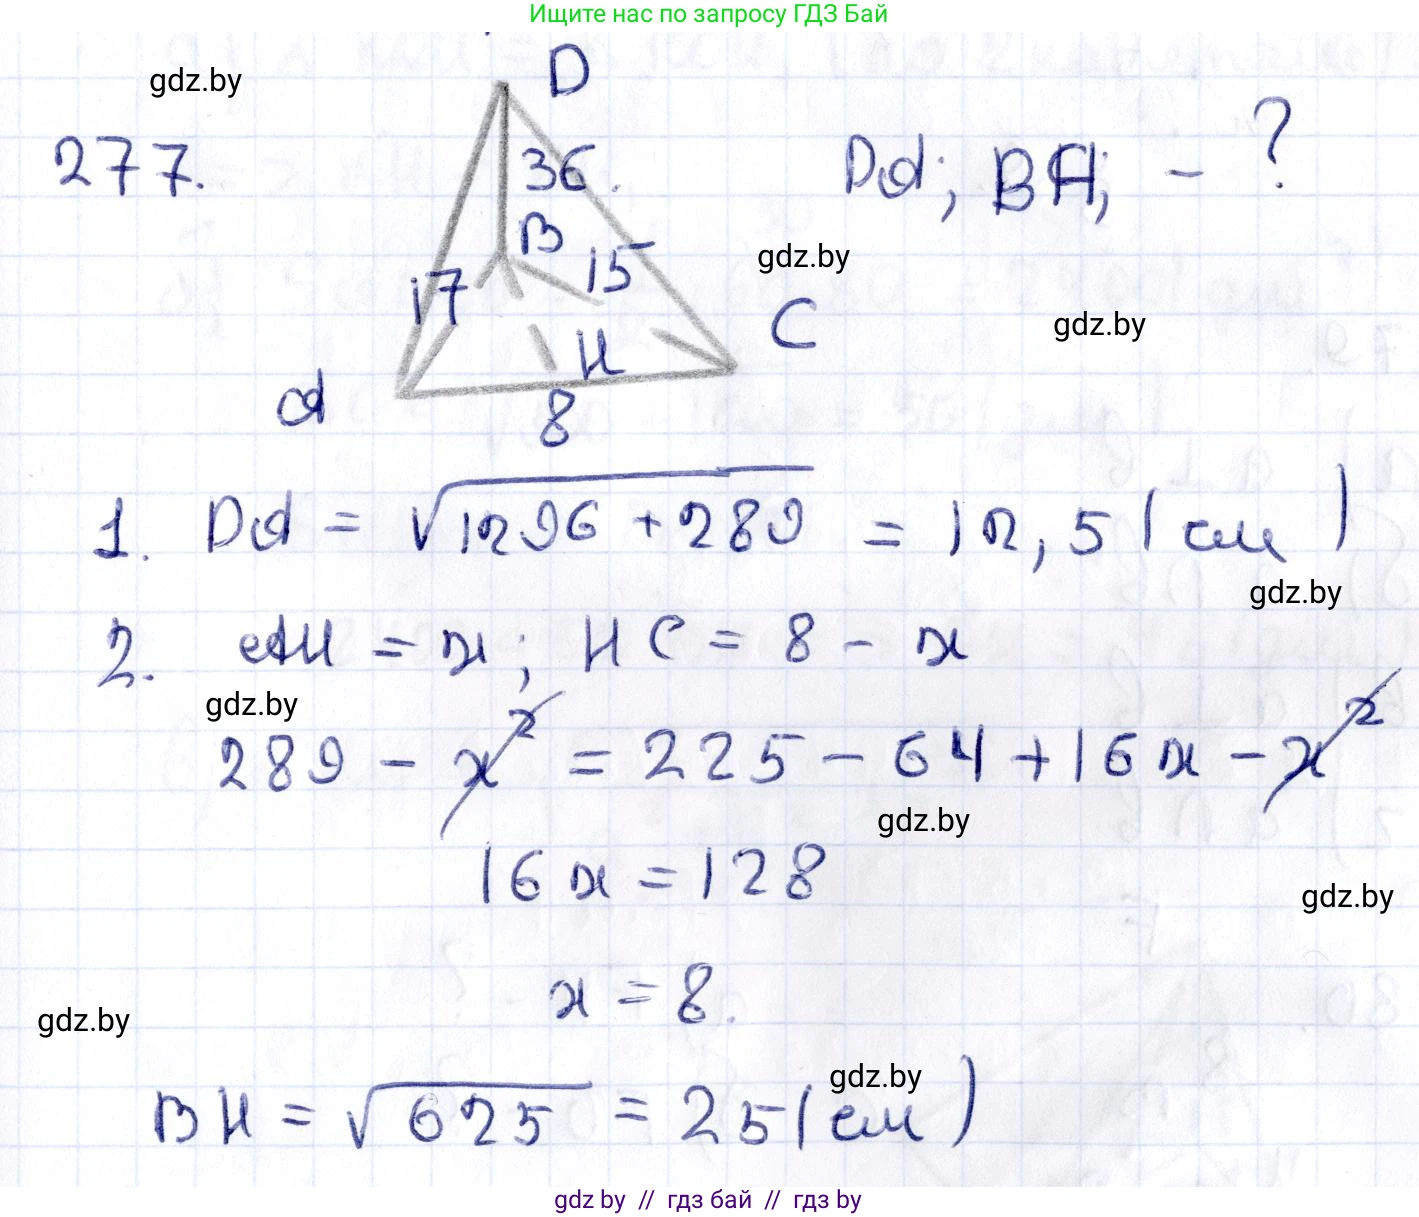 Ищите нас по запросу ГДЗ Бай
gdz.by
D
277.
36.
DA; BH; - ?
B
15
gdz.by
17
C
gdz.by
H
A
8
1. DA = √1296 + 289 = 12,5 (см)
gdz.by
2. AH = x; HC = 8 - x
gdz.by
289 - x² = 225 - 64 + 16x - x²
gdz.by
16x = 128
gdz.by
x = 8.
gdz.by
gdz.by
BH = √625 = 25 (см)
gdz.by // гдз бай // гдз by